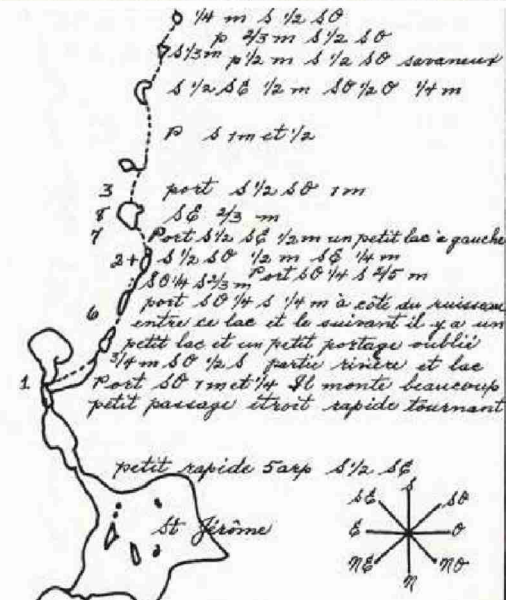 1/4 m S 1/2 SO
p 2/3 m S 1/2 SO
S 1/3 m p 1/2 m S 1/2 SO savaneux
S 1/2 SE 1/2 m SO 1/2 O 1/4 m
P S 1 m et 1/2
3 port S 1/2 SO 1 m
8 SE 2/3 m
7 Port S 1/2 SE 1/2 m un petit lac à gauche
2+ S 1/2 SO 1/2 m SE 1/4 m
SO 1/4 S 2/3 m Port SO 1/4 S 2/5 m
port SO 1/4 S 1/4 m à côté du ruisseau
6 entre ce lac et le suivant il y a un
petit lac et un petit portage oublié
3/4 m SO 1/2 S partie rivière et lac
1 Port SO 1 m et 1/4 Il monte beaucoup
petit passage étroit rapide tournant
petit rapide 5 arp S 1/2 SE
St Jérôme
S
SE SO
E O
NE NO
N